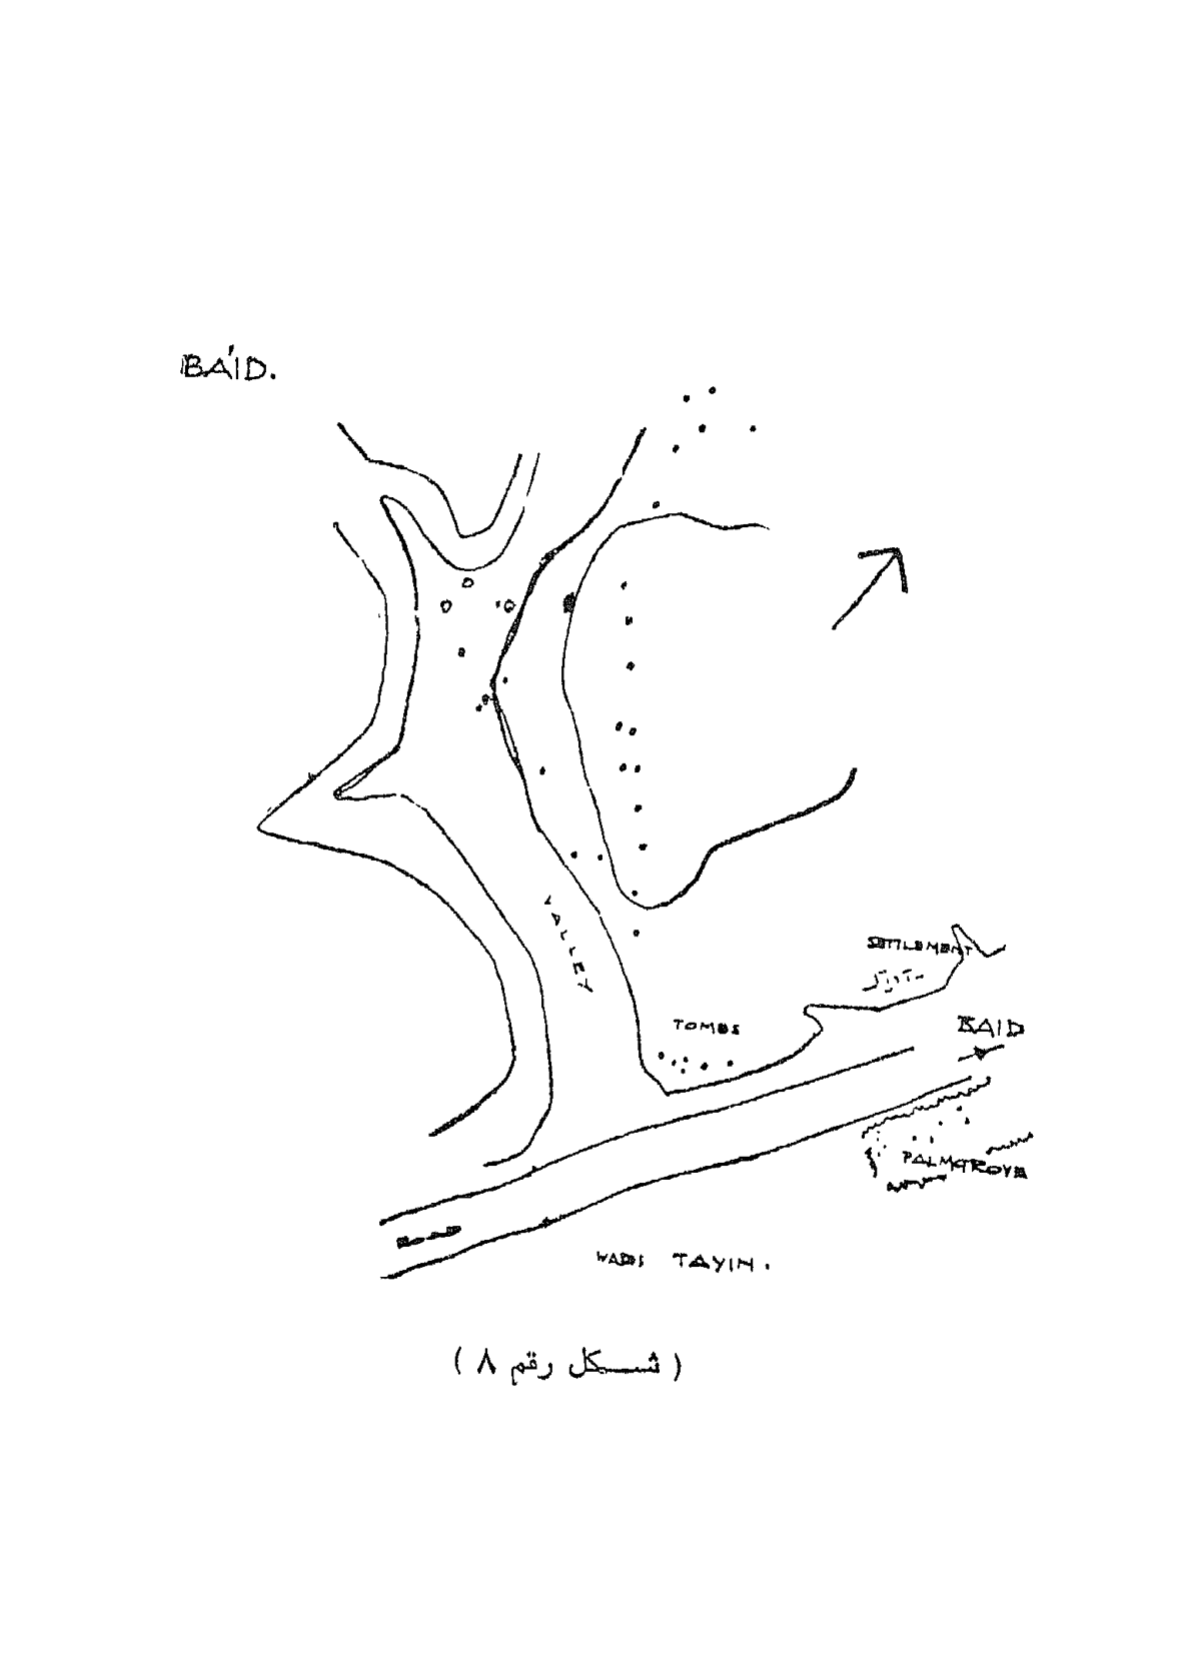 BA'ID.
VALLEY
SETTLEMENT
TOMBS
BAID
PALMGROVE
ROAD
WADI TAYIN.
( شكل رقم ٨ )